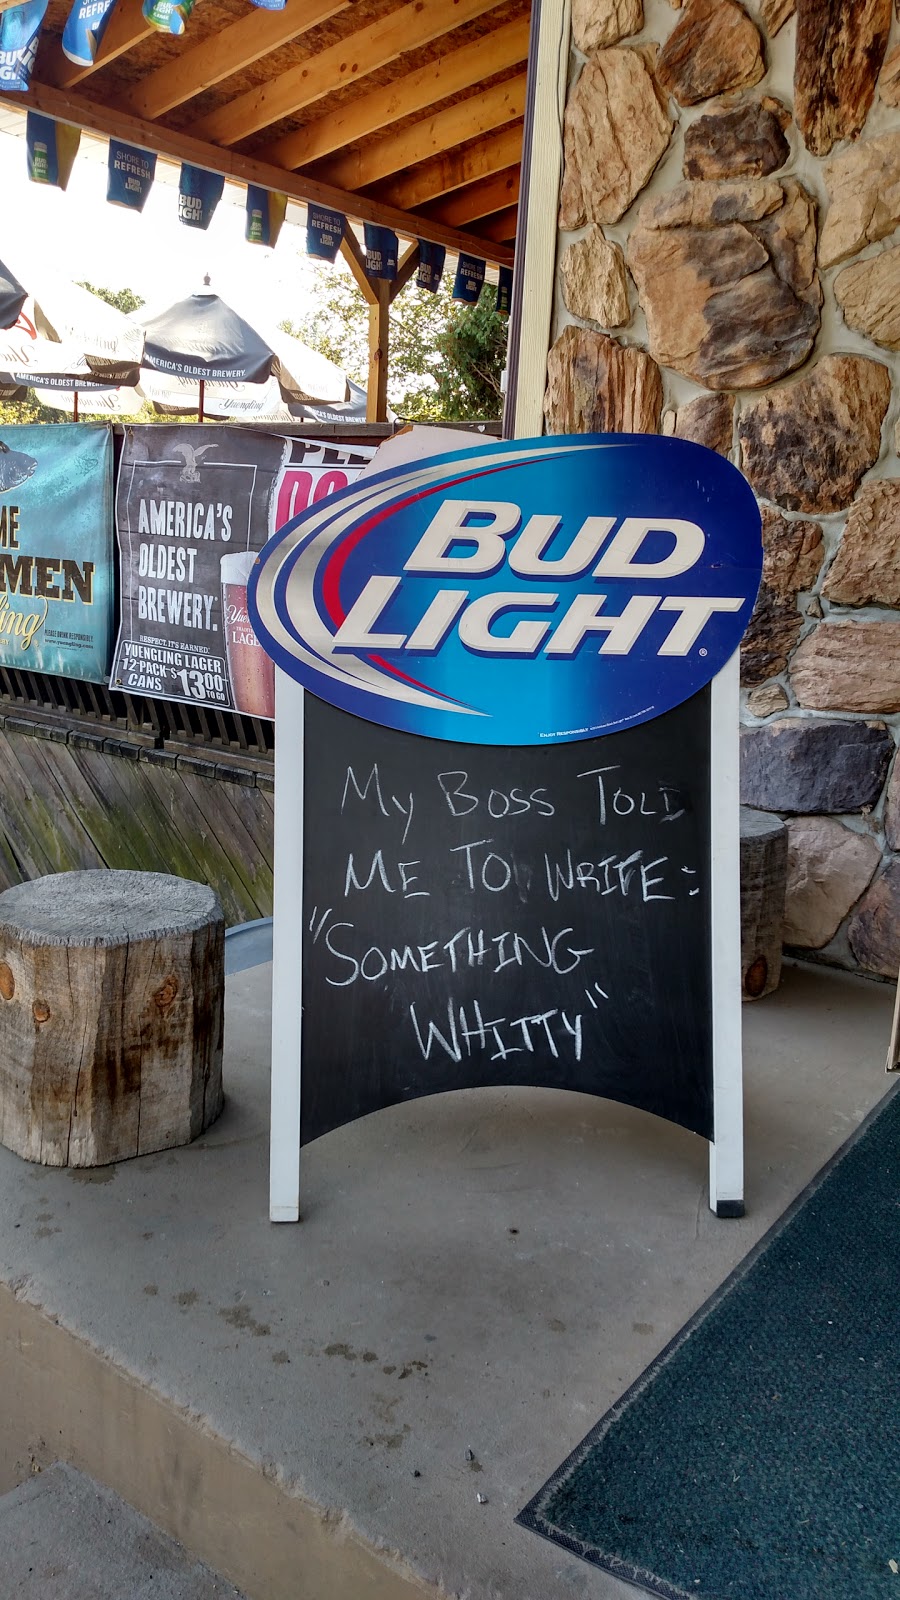 SHORE TO
REFRESH
BUD
LIGHT
BUD
LIGHT
SHORE TO
REFRESH
AMERICA'S OLDEST BREWERY.
AMERICA'S OLDEST BREWERY
Yuengling
AMERICA'S
OLDEST
BREWERY.
RESPECT. IT'S EARNED.
YUENGLING LAGER
12-PACK $13.00
CANS TO GO
MEN
PLEASE DRINK RESPONSIBLY
www.yuengling.com
BUD
LIGHT®
ENJOY RESPONSIBLY
MY BOSS TOLD
ME TO WRITE:
"SOMETHING
WHITTY"